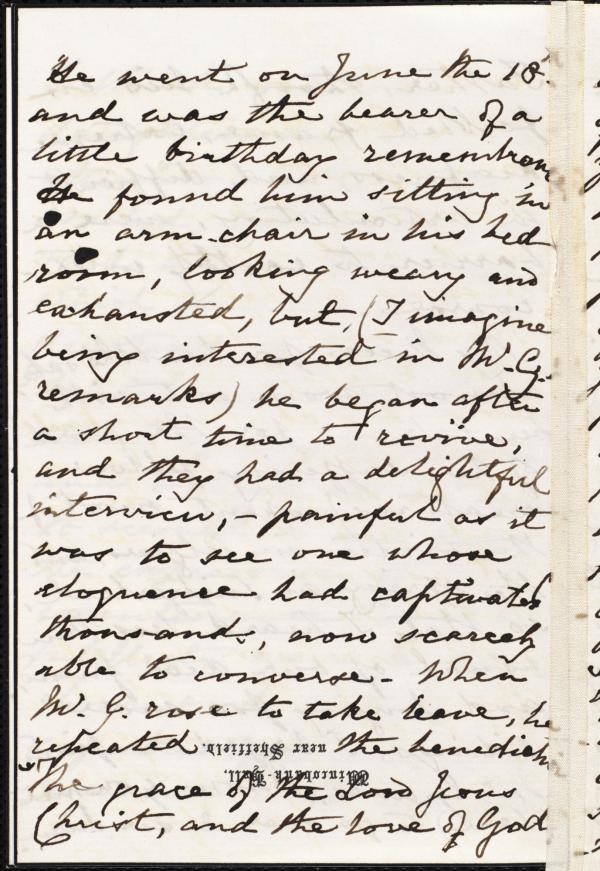 He went on June the 18.
and was the bearer of a
little birthday remembran
He found him sitting in
an arm-chair in his bed
room, looking weary and
exhausted, but, (I imagine
being interested in Mr. G's.
remarks) he began after
a short time to revive,
and they had a delightful
interview, - painful as it
was to see one whose
eloquence had captivated
thousands, now scarcely
able to converse - When
Mr. G. rose to take leave, he
repeated the benedicti
near Sheffield.
Wincobank-Hall,
"The grace of the Lord Jesus
Christ, and the love of God